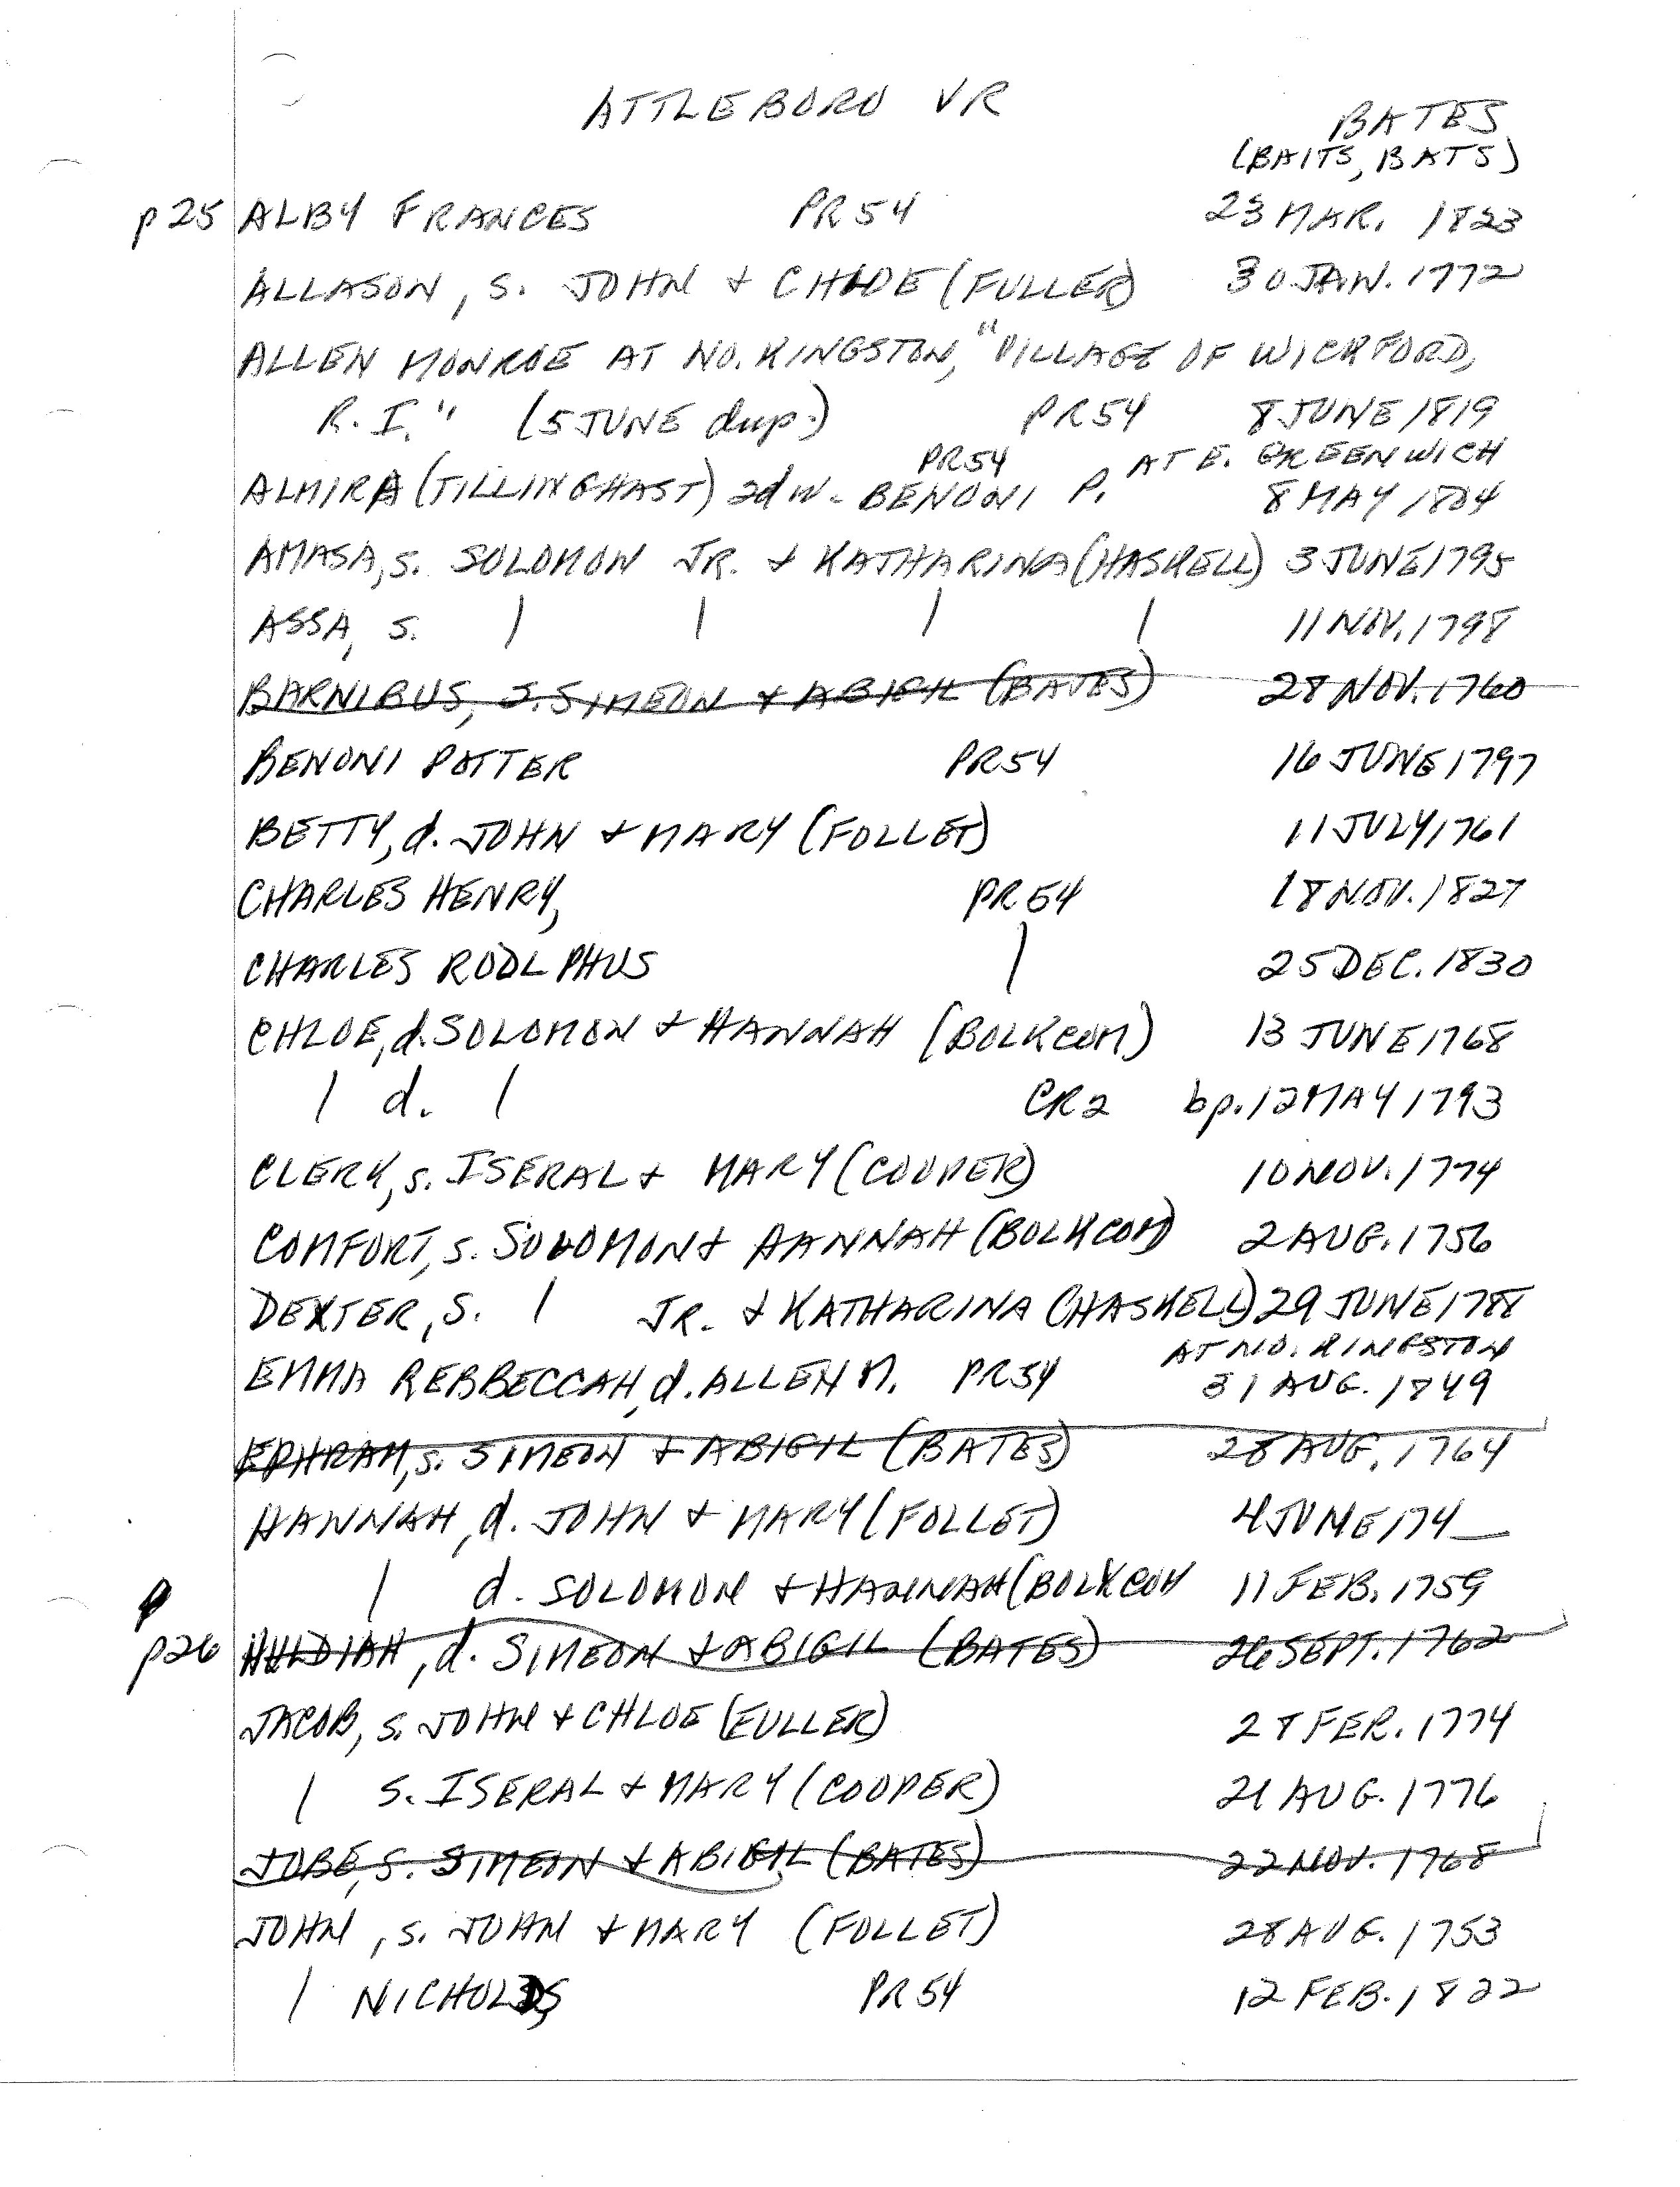 ATTLEBORO VR
BATES
(BAITS, BATS)
p25 ALBY FRANCES PR54 23 MAR. 1823
ALLASON, s. JOHN + CHLOE (FULLER) 30 JAN. 1772
ALLEN MONROE AT NO. KINGSTON, "VILLAGE OF WICKFORD,
R.I." (5 JUNE dup.) PR54 8 JUNE 1819
PR54 AT E. GREENWICH
ALMIRA (TILLINGHAST) 2d w. BENONI P. 8 MAY 1804
AMASA, s. SOLOMON JR. + KATHARINA (HASKELL) 3 JUNE 1795
ASSA, s. | | | | 11 NOV. 1798
BARNIBUS, s. SIMEON + ABIGIL (BATES) 28 NOV. 1760
BENONI POTTER PR54 16 JUNE 1797
BETTY, d. JOHN + MARY (FOLLET) 11 JULY 1761
CHARLES HENRY, PR54 18 NOV. 1827
CHARLES RODLPHUS | 25 DEC. 1830
CHLOE, d. SOLOMON + HANNAH (BOLKCOM) 13 JUNE 1768
| d. | CR2 bp. 12 MAY 1793
CLERK, s. ISERAL + MARY (COOPER) 10 NOV. 1774
COMFORT, s. SOLOMON + HANNAH (BOLKCOM) 2 AUG. 1756
DEXTER, s. | JR. + KATHARINA (HASKELL) 29 JUNE 1788
AT NO. KINGSTON
EMMA REBBECCAH, d. ALLEN M. PR54 31 AUG. 1849
EPHRAM, s. SIMEON + ABIGIL (BATES) 28 AUG. 1764
HANNAH, d. JOHN + MARY (FOLLET) 4 JUNE 174_
| d. SOLOMON + HANNAH (BOLKCOM 11 FEB. 1759
p26 HULDIAH, d. SIMEON + ABIGIL (BATES) 26 SEPT. 1762
JACOB, s. JOHN + CHLOE (FULLER) 28 FEB. 1774
| s. ISERAL + MARY (COOPER) 21 AUG. 1776
JOBE, s. SIMEON + ABIGIL (BATES) 22 NOV. 1768
JOHN, s. JOHN + MARY (FOLLET) 28 AUG. 1753
| NICHOLS PR54 12 FEB. 1822